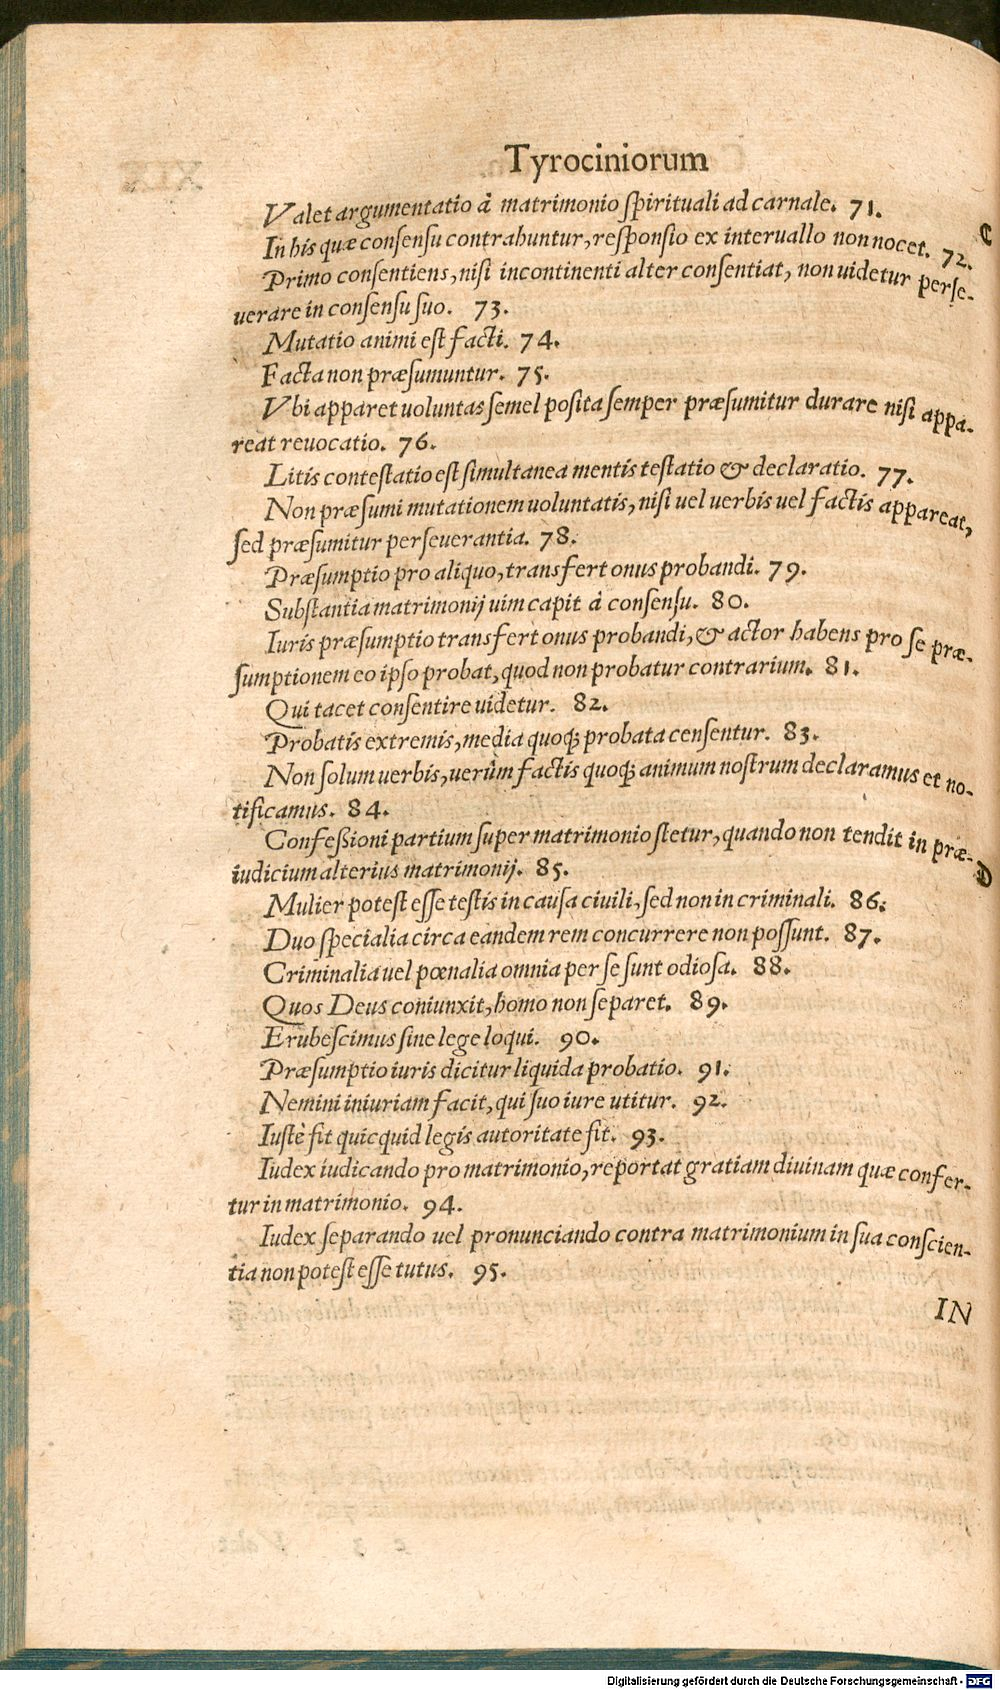 Tyrociniorum
Valet argumentatio à matrimonio ſpirituali ad carnale. 71.
C
In his quæ conſenſu contrahuntur, reſponſio ex interuallo non nocet. 72.
Primo conſentiens, niſi incontinenti alter conſentiat, non uidetur perſe-
uerare in conſenſu ſuo. 73.
Mutatio animi eſt facti. 74.
Facta non præſumuntur. 75.
Vbi apparet uoluntas ſemel poſita ſemper præſumitur durare niſi appa-
reat reuocatio. 76.
Litis conteſtatio eſt ſimultanea mentis teſtatio & declaratio. 77.
Non præſumi mutationem uoluntatis, niſi uel uerbis uel factis appareat,
ſed præſumitur perſeuerantia. 78.
Præſumptio pro aliquo, transfert onus probandi. 79.
Subſtantia matrimonij uim capit à conſenſu. 80.
Iuris præſumptio transfert onus probandi, & actor habens pro ſe præ-
ſumptionem eo ipſo probat, quod non probatur contrarium. 81.
Qui tacet conſentire uidetur. 82.
Probatis extremis, media quoq; probata cenſentur. 83.
Non ſolum uerbis, uerùm factis quoq; animum noſtrum declaramus et no-
tificamus. 84.
Confeßioni partium ſuper matrimonio ſtetur, quando non tendit in præ-
D
iudicium alterius matrimonij. 85.
Mulier poteſt eſſe teſtis in cauſa ciuili, ſed non in criminali. 86.
Duo ſpecialia circa eandem rem concurrere non poſſunt. 87.
Criminalia uel pœnalia omnia per ſe ſunt odioſa. 88.
Quos Deus coniunxit, homo non ſeparet. 89.
Erubeſcimus ſine lege loqui. 90.
Præſumptio iuris dicitur liquida probatio. 91.
Nemini iniuriam facit, qui ſuo iure utitur. 92.
Iuſtè fit quicquid legis autoritate fit. 93.
Iudex iudicando pro matrimonio, reportat gratiam diuinam quæ confer-
tur in matrimonio. 94.
Iudex ſeparando uel pronunciando contra matrimonium in ſua conſcien-
tia non poteſt eſſe tutus. 95.
IN
Digitalisierung gefördert durch die Deutsche Forschungsgemeinschaft - DFG